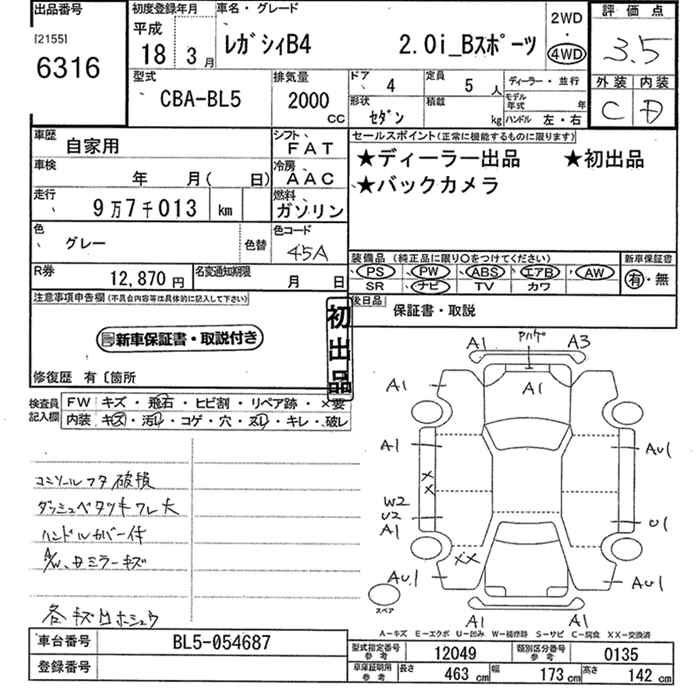 出品番号
[2155]
6316
初度登録年月
平成
18年3月
車名・グレード
レガシィB4 2.0i_Bスポーツ
2WD
・
4WD
評価点
3.5
外装 内装
C D
型式
CBA-BL5
排気量
2000
cc
ドア 4
定員 5 人
ディーラー・並行
形状 セダン
積載 kg
モデル年式 年
ハンドル 左・右
車歴 自家用
シフト FAT
車検 年 月( 日)
冷房 AAC
走行 9万7千013 km
燃料 ガソリン
色 グレー
色替
色コード 45A
R券 12,870円
名変通知期限 月 日
セールスポイント(正常に機能するものに限ります)
★ディーラー出品 ★初出品
★バックカメラ
装備品 (純正品に限り〇をつけてください)
PS PW ABS エアB AW
SR ナビ TV カワ
新車保証書
有・無
後日品
保証書・取説
注意事項申告欄(不具合内容等は具体的に記入して下さい)
新車保証書・取説付き
初出品
修復歴 有〔箇所
検査員記入欄
FW キズ・飛石・ヒビ割・リペア跡・×要
内装 キズ・汚レ・コゲ・穴・スレ・キレ・破レ
コンソールフタ破損
ダッシュベタツキワレ大
ハンドルカバー付
A/W、Bミラーキズ
各キズ凹ホシュウ
A1 A3
A1
A1
A1
AU1
W2
U2
A1
U1
AU1
AU1
A1 A1
XX
XX
スペア
A-キズ E-エクボ U-凹み W-補修跡 S-サビ C-腐食 XX-交換済
車台番号 BL5-054687
登録番号
型式指定番号 参考 12049
類別区分番号 参考 0135
車庫証明用 参考 長さ 463 cm 幅 173 cm 高さ 142 cm